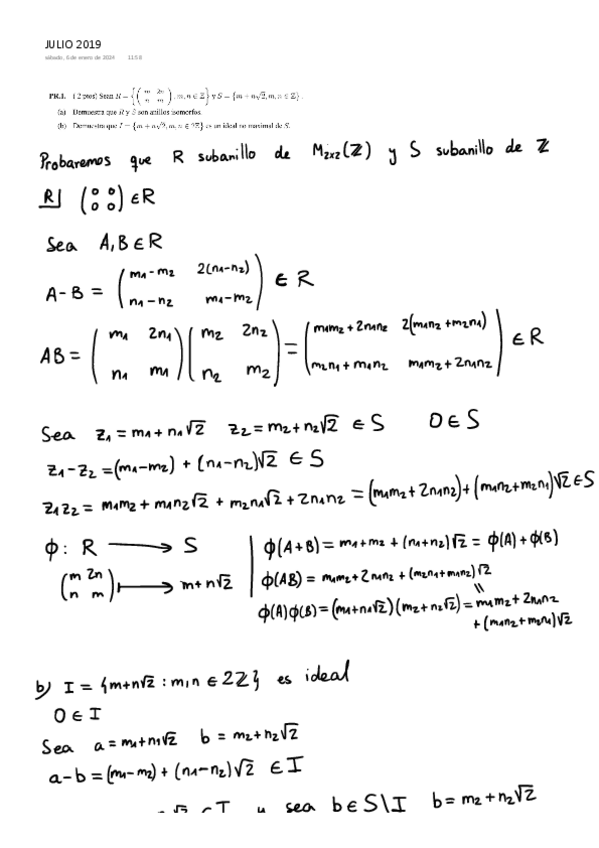 JULIO 2019
sábado, 6 de enero de 2024 11:58
PR.1. [2 ptos] Sean R = {( m 2n ; n m ), m, n ∈ ℤ} y S = {m + n√2, m, n ∈ ℤ}.
(a) Demuestra que R y S son anillos isomorfos.
(b) Demuestra que I = {m + n√2, m, n ∈ 2ℤ} es un ideal no maximal de S.
Probaremos que R subanillo de M2x2(ℤ) y S subanillo de ℤ
R| (0 0 ; 0 0) ∈ R
Sea A,B ∈ R
A-B = ( m1-m2 2(n1-n2) ; n1-n2 m1-m2 ) ∈ R
AB = ( m1 2n1 ; n1 m1 )( m2 2n2 ; n2 m2 ) = ( m1m2+2n1n2 2(m1n2+m2n1) ; m2n1+m1n2 m1m2+2n1n2 ) ∈ R
Sea z1 = m1+n1√2 z2 = m2+n2√2 ∈ S 0 ∈ S
z1-z2 = (m1-m2) + (n1-n2)√2 ∈ S
z1z2 = m1m2 + m1n2√2 + m2n1√2 + 2n1n2 = (m1m2+2n1n2)+(m1n2+m2n1)√2 ∈ S
ϕ: R ⟶ S
(m 2n ; n m) ⟼ m+n√2
ϕ(A+B) = m1+m2 + (n1+n2)√2 = ϕ(A)+ϕ(B)
ϕ(AB) = m1m2+2n1n2 + (m2n1+m1n2)√2
||
ϕ(A)ϕ(B) = (m1+n1√2)(m2+n2√2) = m1m2+2n1n2
+ (m1n2+m2n1)√2
b) I = {m+n√2 : m,n ∈ 2ℤ} es ideal
0 ∈ I
Sea a = m1+n1√2 b = m2+n2√2
a-b = (m1-m2) + (n1-n2)√2 ∈ I
√2 ∈ I y sea b ∈ S\I b = m2+n2√2